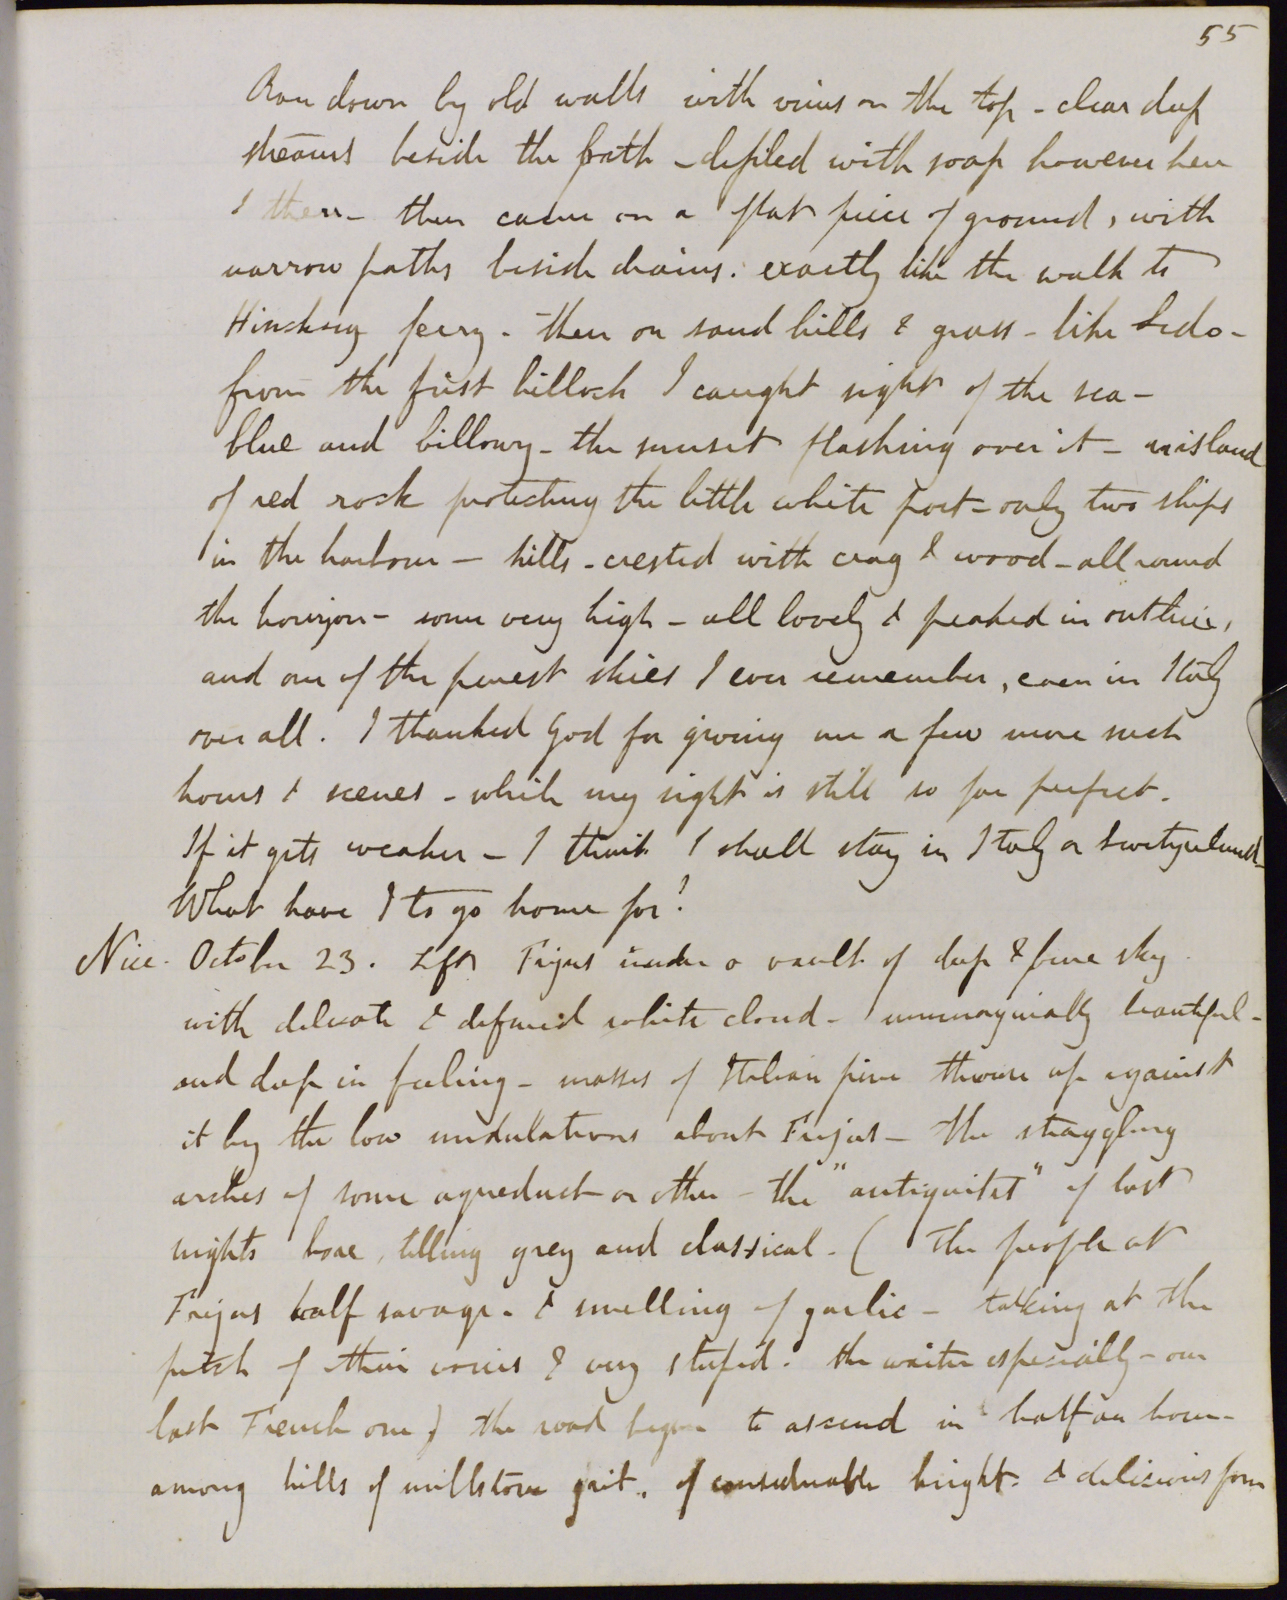 55
Ran down by old walls with vines on the top - clear deep
streams beside the path - defiled with soap however here
& there - then came on a flat piece of ground, with
narrow paths beside drains. exactly like the walk to
Hincksey ferry - then on sand hills & grass - like Lido -
from the first hillock I caught sight of the sea -
blue and billowy - the sunset flashing over it - an island
of red rock protecting the little white port - only two ships
in the harbour - hills - crested with crag & wood - all round
the horizon - some very high - all lovely & peaked in outline,
and one of the purest skies I ever remember, even in Italy
over all. I thanked God for giving me a few more such
hours & scenes - while my sight is still so far perfect.
If it gets weaker - I think I shall stay in Italy or Switzerland -
What have I to go home for!
Nice. October 23. Left Frejus under a vault of deep & pure sky
with delicate & defined white cloud - unimaginably beautiful -
and deep in feeling - masses of Italian pine thrown up against
it by the low undulations about Frejus - the straggling
arches of some aqueduct or other - the "antiquitat" of last
nights boae, telling grey and classical. ( The people at
Frejus half savage - & smelling of garlic - talking at the
pitch of their voices & very stupid. the waiter especially - our
last French one) the road began to ascend in half an hour -
among hills of millstone grit. of considerable height. & delicious form